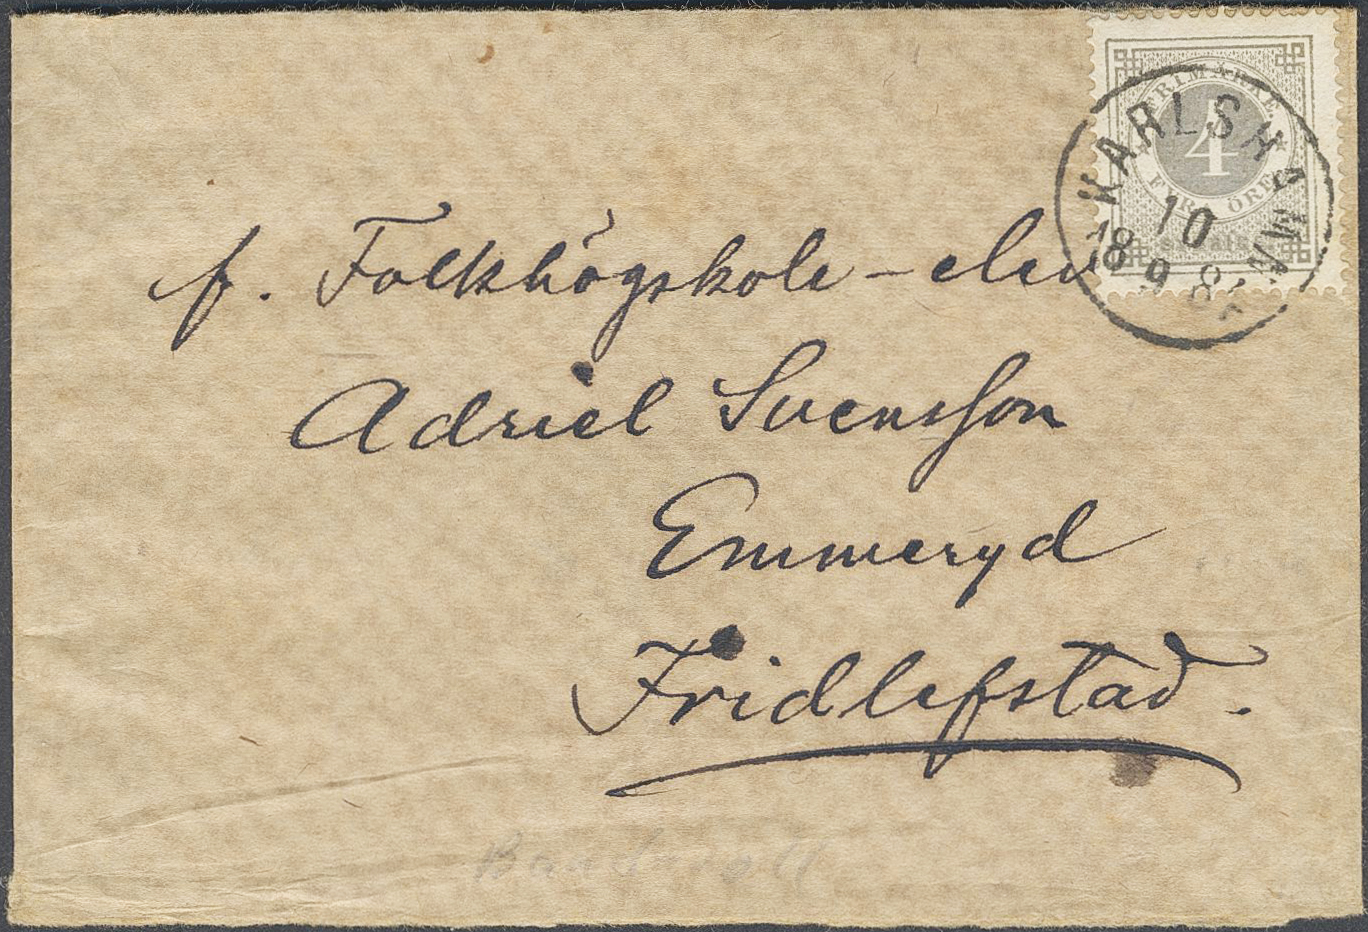 FRIMÄRKE
4
FYRA ÖRE
KARLSHAMN
10
18 9 8
f. Folkhögskole-elev
Adriel Svensson
Emmeryd
Fridlefstad.